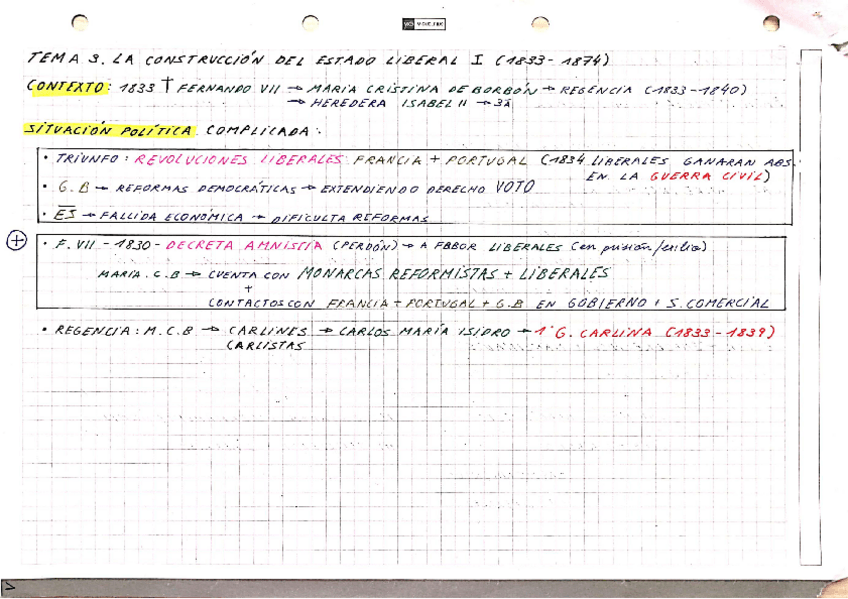 TEMA 3. LA CONSTRUCCIÓN DEL ESTADO LIBERAL I (1833-1874)
CONTEXTO: 1833 † FERNANDO VII → MARIA CRISTINA DE BORBÓN → REGENCIA (1833-1840)
→ HEREDERA ISABEL II → 3a
SITUACIÓN POLÍTICA COMPLICADA:
• TRIUNFO: REVOLUCIONES LIBERALES FRANCIA + PORTUGAL (1834 LIBERALES GANARAN ABS.
EN LA GUERRA CIVIL)
• G.B → REFORMAS DEMOCRÁTICAS → EXTENDIENDO DERECHO VOTO
• ES → FALLIDA ECONÓMICA → DIFICULTA REFORMAS
+ • F. VII - 1830 - DECRETA AMNISTÍA (PERDÓN) → A FABOR LIBERALES (en prisión/exilio)
MARIA. C.B → CUENTA CON MONARCAS REFORMISTAS + LIBERALES
+
CONTACTOS CON FRANCIA + PORTUGAL + G.B EN GOBIERNO S. COMERCIAL
• REGENCIA: M.C.B → CARLINES → CARLOS MARIA ISIDRO → 1ª G. CARLINA (1833-1839)
CARLISTAS